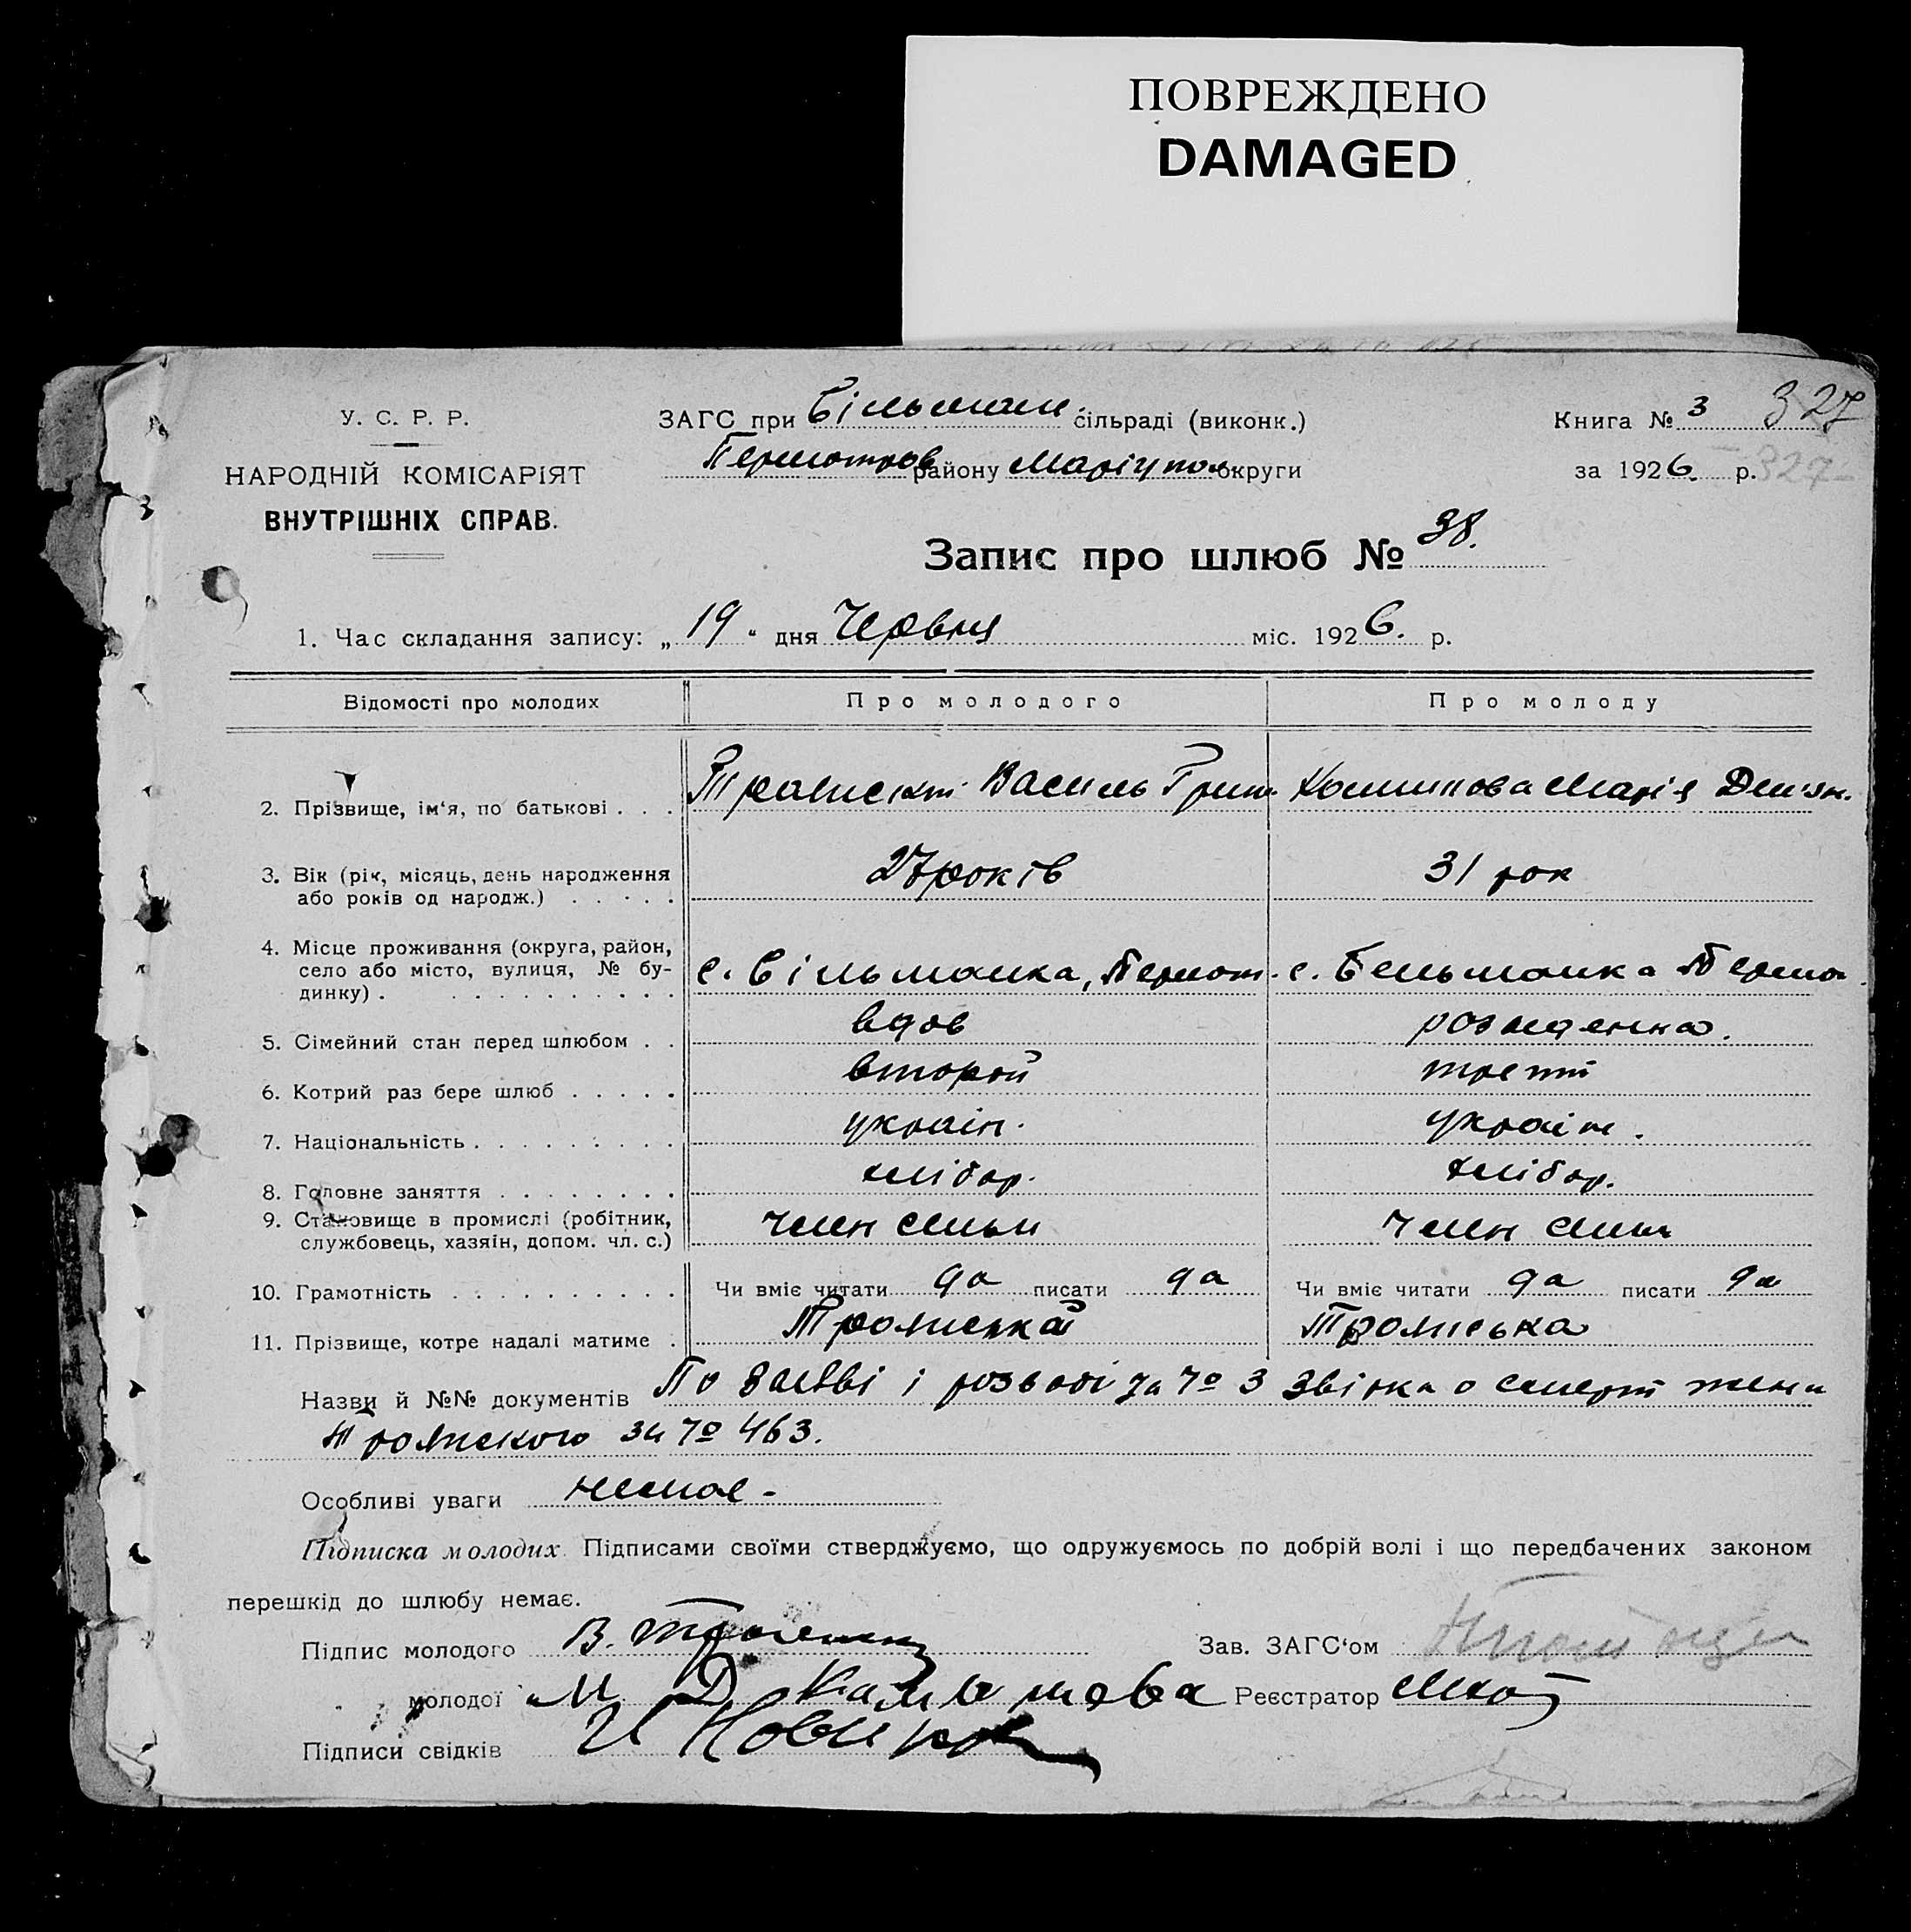 ПОВРЕЖДЕНО
DAMAGED
У. С. Р. Р.
НАРОДНІЙ КОМІСАРІЯТ
ВНУТРІШНІХ СПРАВ.
ЗАГС при Більман. сільраді (виконк.)
району Маріупол. округи
Книга № 3 327
за 1926. р. 327
Запис про шлюб № 38.
1. Час складання запису: „19“ дня Червня міс. 1926. р.
Відомості про молодих Про молодого Про молоду
2. Прізвище, ім‘я, по батькові . . . Василь Григ. Марія Дем'ян.
3. Вік (рік, місяць, день народження
або років од народж.) . . . . . 27 років 31 рок
4. Місце проживання (округа, район,
село або місто, вулиця, № бу-
динку) . . . . . . . . . . с. Більманка, с. Бельманка
5. Сімейний стан перед шлюбом . . вдов
6. Котрий раз бере шлюб . . . . . второй трет
7. Національність . . . . . . . . . україн. україн.
8. Головне заняття . . . . . . . . хлібор. хлібор.
9. Становище в промислі (робітник,
службовець, хазяїн, допом. чл. с.) член семьи член семьи
10. Грамотність . . . . . . . . . . Чи вміє читати да писати да Чи вміє читати да писати да
11. Прізвище, котре надалі матиме .
Назви й №№ документів По заяві і розводі за № 3 о смерт жени
за № 463.
Особливі уваги немає -
Підписка молодих. Підписами своїми стверджуємо, що одружуємось по добрій волі і що передбачених законом
перешкід до шлюбу немає.
Підпис молодого В. Зав. ЗАГС‘ом
молодої М Д Реєстратор
Підписи свідків И